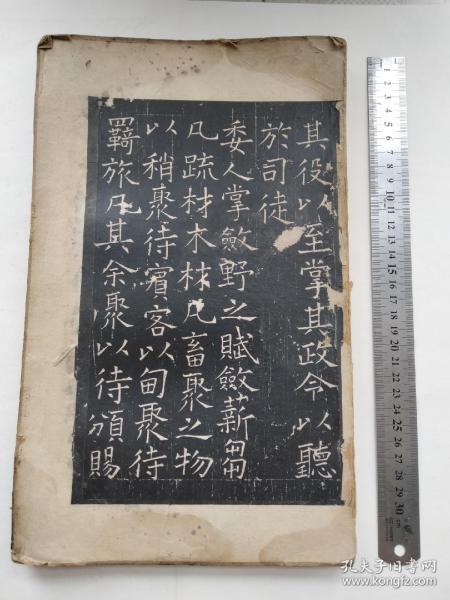 其役以至掌其政令以聽
於司徒
委人掌斂野之賦斂薪芻
凡疏材木材凡畜聚之物
以稍聚待賓客以甸聚待
羇旅凡其余聚以待頒賜
1 2 3 4 5 6 7 8 9 10 11 12 13 14 15 16 17 18 19 20 21 22 23 24 25 26 27 28 29 30 cm
孔夫子旧书网
www.kongfz.com